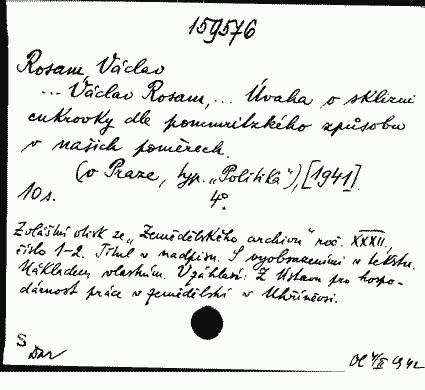 159576
Rosam, Václav
... Václav Rosam, ... Úvaha o sklizni
cukrovky dle pommritzkého způsobu
v našich poměrech.
(v Praze, typ. „Politika“), [1941].
10 s. 4°.
Zvláštní otisk ze „Zemědělského archivu“ roč. XXXII,
číslo 1-2. Titul v nadpisu. S vyobrazeními v tekstu.
Nákladem vlastním. V záhlaví: Z Ústavu pro hospo-
dárnost práce v zemědělství v Uhříněvsi.
S
Dar